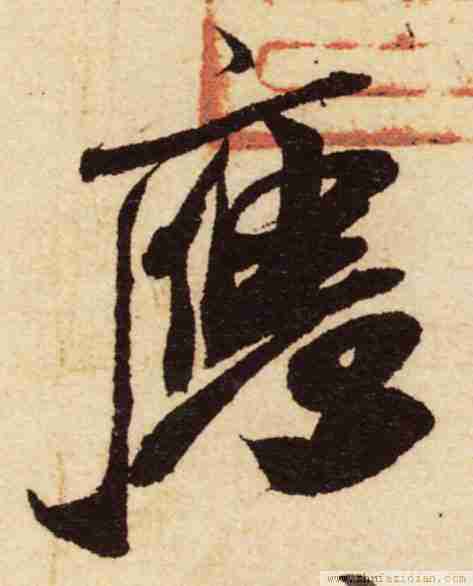 應
www.shufazidian.com